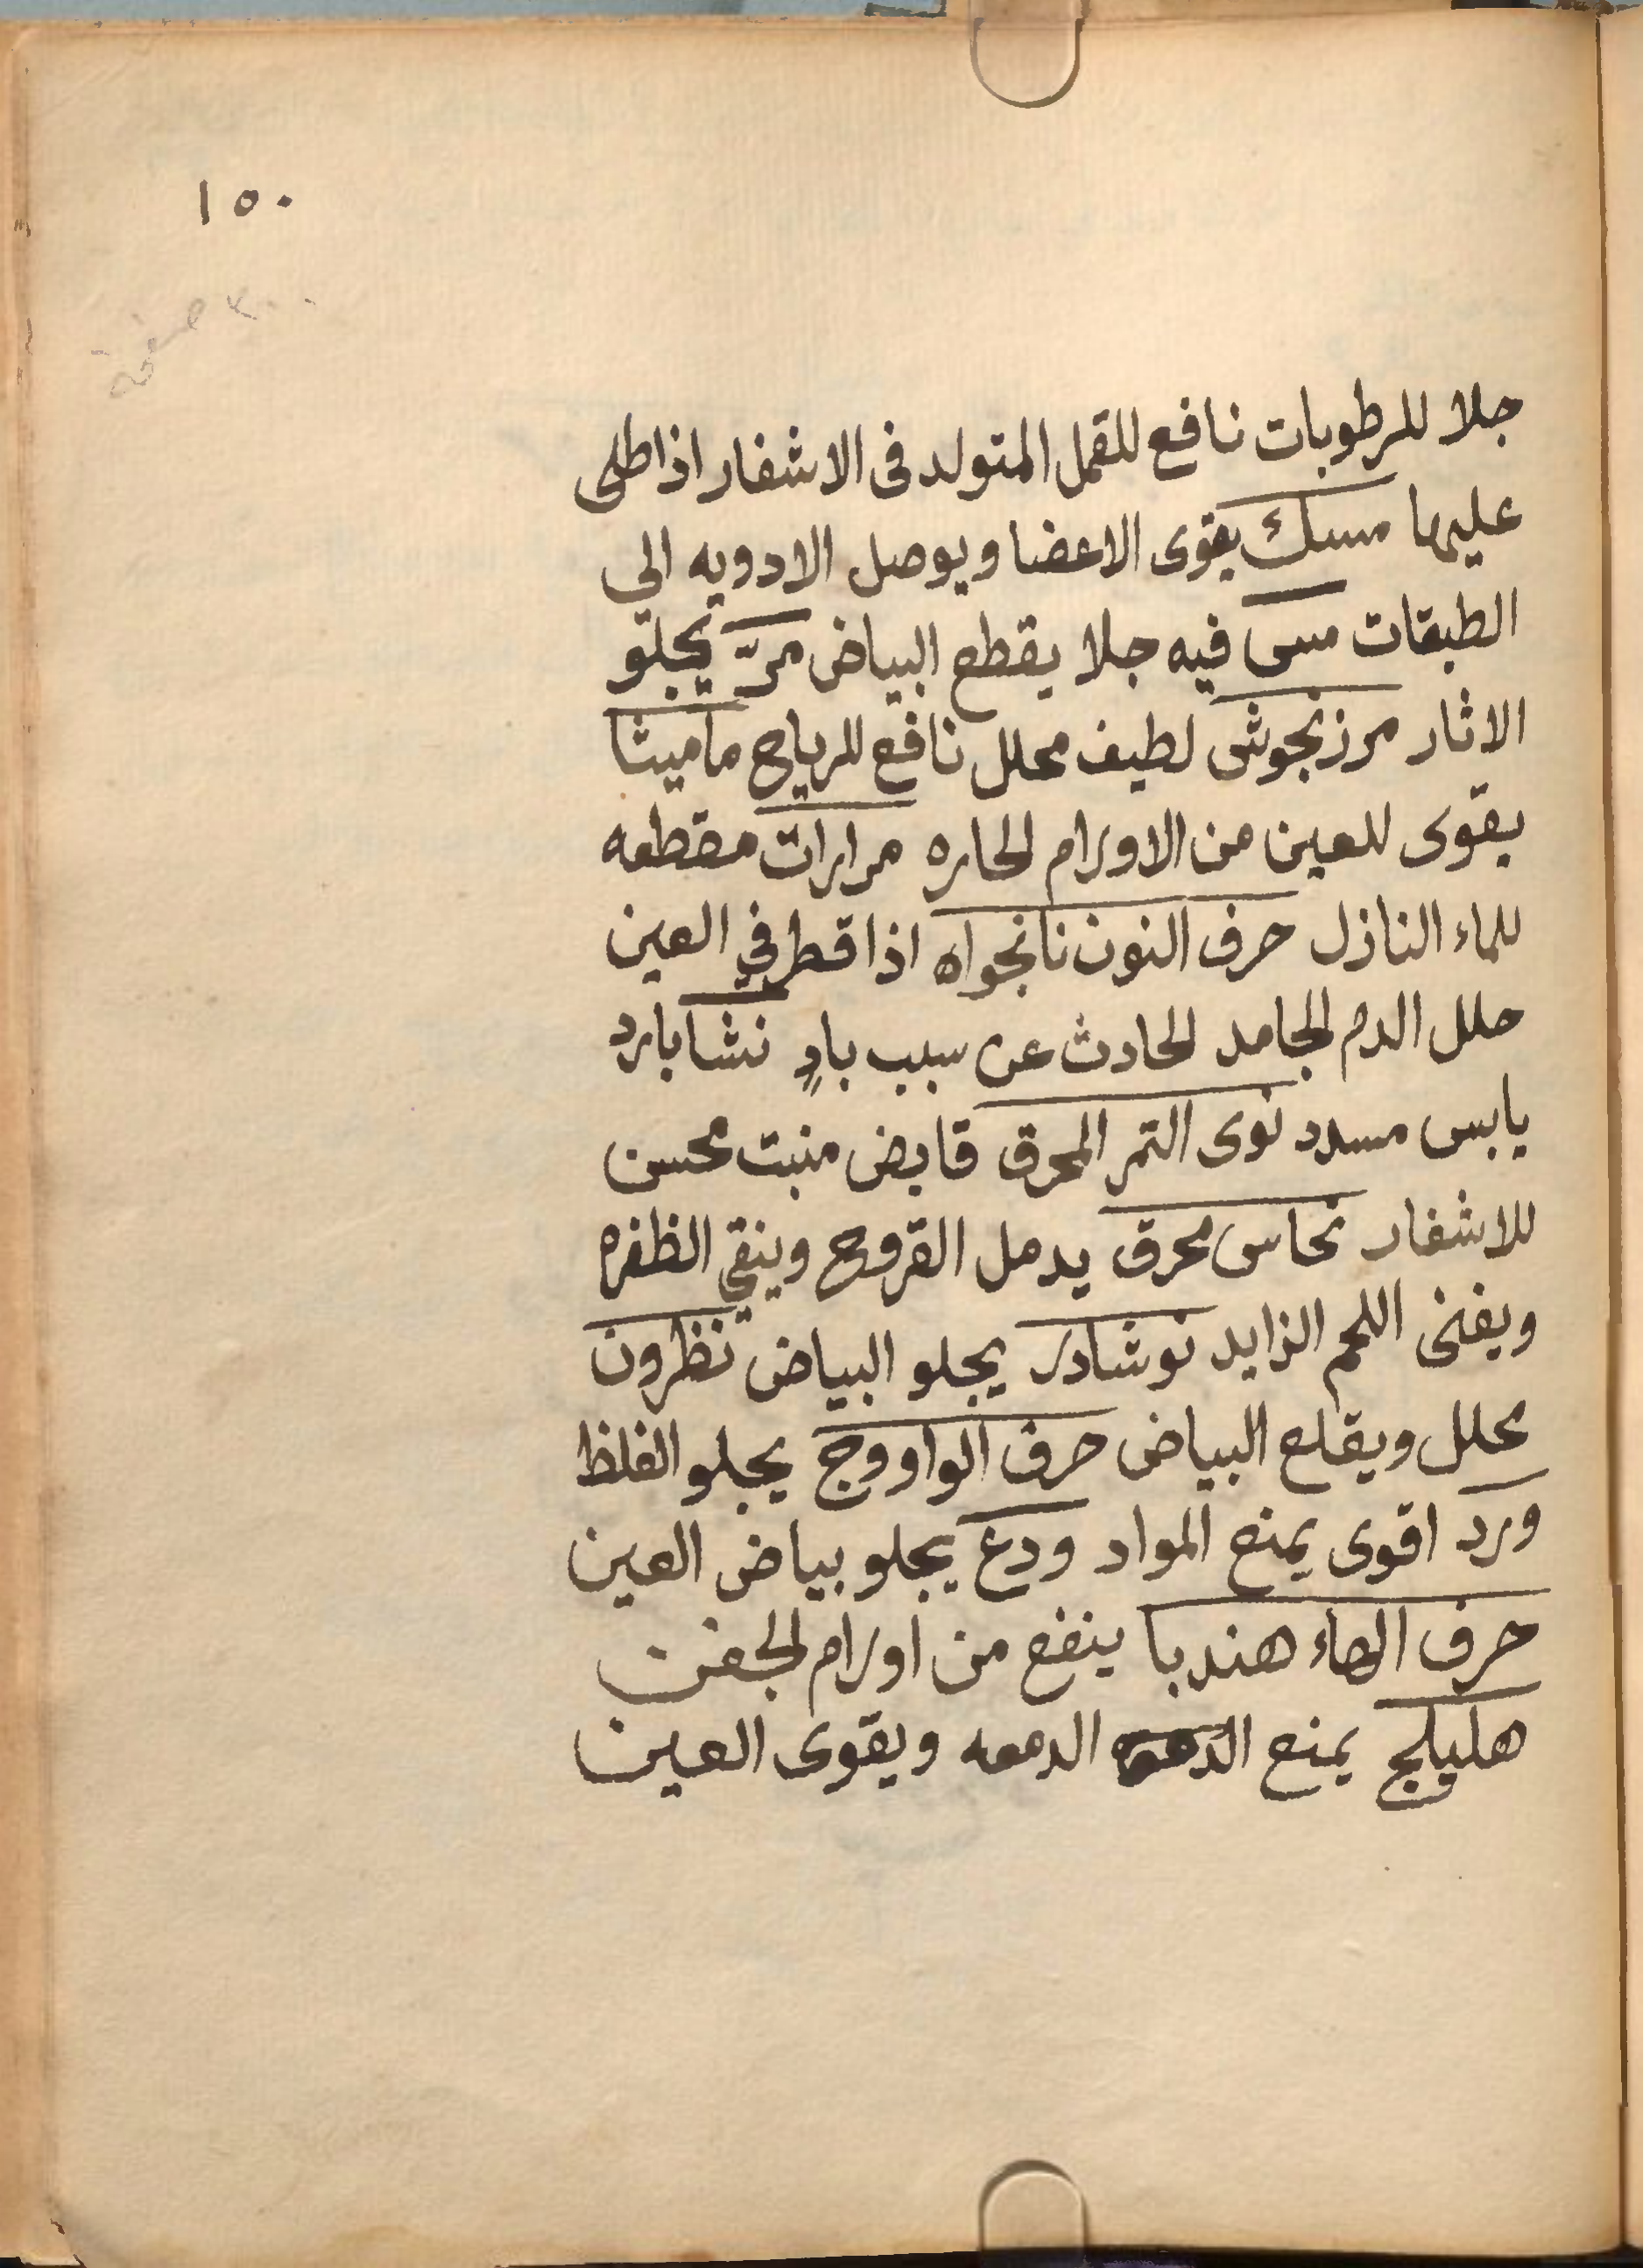 ١٥٠
٣٠٠ صفحة
جلا للرطوبات نافع للقمل المتولد فى الاشفار اذا طلى
عليها مسك يقوى الاعضا ويوصل الادويه الي
الطبقات مسى فيه جلا يقطع البياض مرّ يجلو
الاثار مرزنجوش لطيف محلل نافع للرياح ماميثا
يقوى للعين من الاورام الحاره مرارات مقطعه
للماء النازل حرف النون نانجواه اذا قطر في العين
حلل الدم الجامد الحادث عن سبب بادٍ نشا بارد
يابس مسدد نوى التمر المحرق قابض منبت محسن
للاشفار نحاس محرق يدمل القروح وينقي الظفره
ويفنى اللحم الزايد نوشادر يجلو البياض نظرون
محلل ويقلع البياض حرف الواو وج يجلو الغلظ
ورد اقوى يمنع المواد ودع يجلو بياض العين
حرف الهاء هندبا ينفع من اورام الجفن
هليلج يمنع الدمعه ويقوى العين